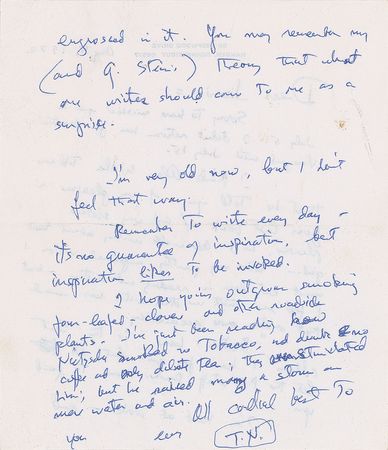 engrossed in it. You may remember my
(and G. Stein's) theory that what
one writes should come to me as a
surprise.
I'm very old now, but I don't
feel that way.
Remember to write every day –
it's no guarantee of inspiration, but
inspiration likes to be invoked.
I hope you've outgrown smoking
four-leafed-clover and other roadside
plants. I've just been reading how
Nietzsche smoked no tobacco, and drank no
coffee and only dilute tea; they stimulated
him; but he raised many a storm on
mere water and air.
All cordial best to
you ever
T.N.